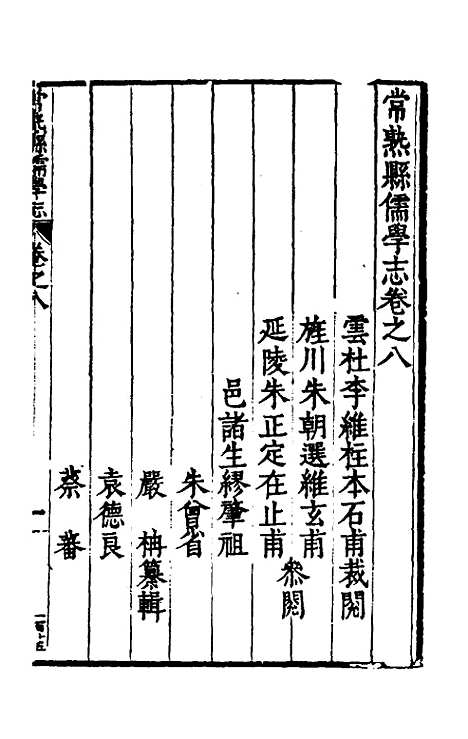 常熟縣儒學志卷之八
雲杜李維柱本石甫裁閱
旌川朱朝選維玄甫
延陵朱正定在止甫
叅閱
邑諸生繆肇祖
朱曾省
嚴柟纂輯
袁德良
蔡蕃
常熟縣儒學志
卷之八
一